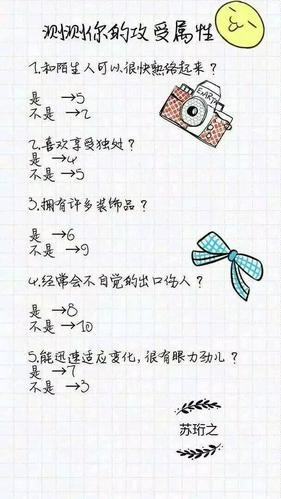 测测你的攻受属性
1.和陌生人可以很快熟络起来？
是 →5
不是 →2
2.喜欢享受独处？
是 →4
不是 →5
3.拥有许多装饰品？
是 →6
不是 →9
4.经常会不自觉的出口伤人？
是 →8
不是 →10
5.能迅速适应变化，很有眼力劲儿？
是 →7
不是 →3
苏珩之